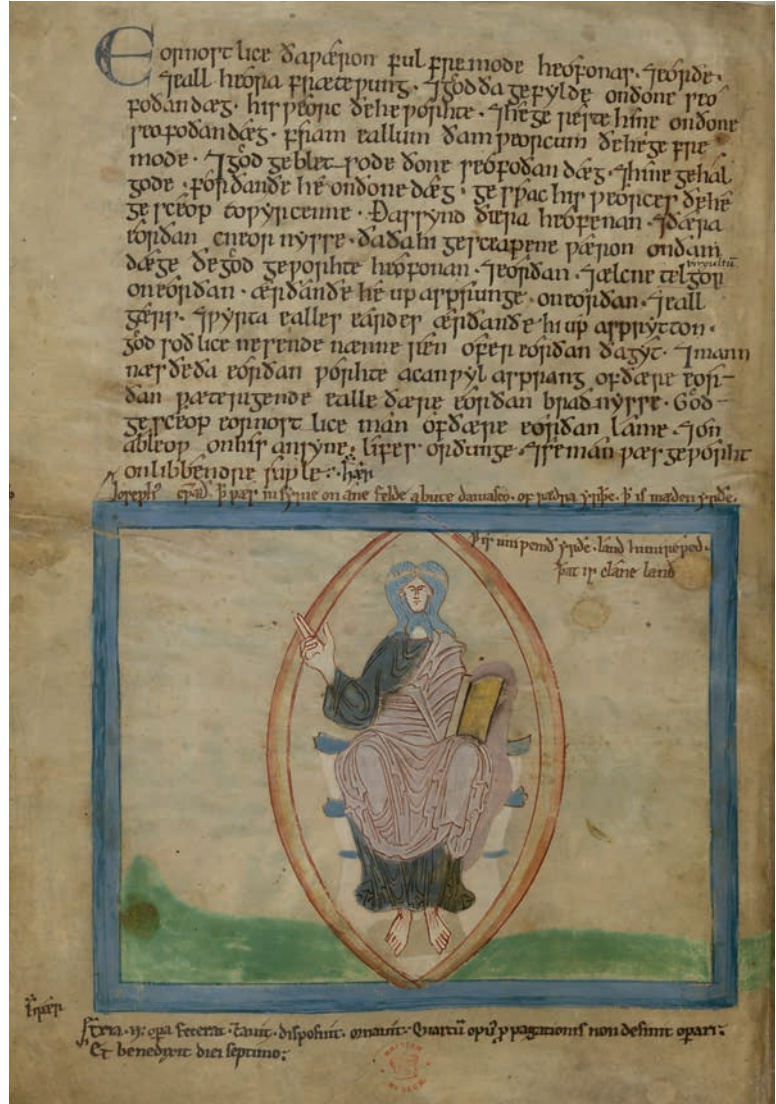 Eornostlice ða wæron fulfremode heofonas · ⁊ eorðe ·
⁊ eall heora frætewung · ⁊ god ða gefylde on ðone seo
foðan dæg · his weorc ðe he worhte · ⁊ he gereste hine on ðone
seofoðan dæg · fram eallum ðam weorcum ðe he gefre
mode · ⁊ god gebletsode ðone seofoðan dæg · ⁊ hine gehal
gode · forðan ðe he on ðone dæg · geswac his weorces ðe he
gesceop to wyrcenne · Ðas synd ðæra heofenan · ⁊ ðæra
eorðan cneornysse · ða ða hi gesceapene wæron on ðam
virgultū
dæge ðe god geworhte heofonan · ⁊ eorðan · ⁊ ælcne telgor
on eorðan · ær ðan ðe he up asprunge · on eorðan · ⁊ eall
gærs · ⁊ wyrta ealles eardes ær ðan ðe hi up asprytton ·
god soðlice ne sende nænne ren ofer eorðan ða gyt · ⁊ mann
næs ðe ða eorðan worhte ac an wyl asprang of ðære eor-
ðan wæterigende ealle ðære eorðan bradnysse · God
gesceop eornostlice man of ðære eorðan lame · ⁊ on
ableow on his ansyne lifes orðunge · ⁊ se man wæs geworht
on libbendre
Ioseph' cwæð þ wæs in syrie on ane felde abute damasco · of þ is mæden
þ is land
þat is clæne land
opa fecerat · disposuit · ornauit · Quartū opus ꝓpagationis non desinit operari ·
Et benedixit diei septimo ;